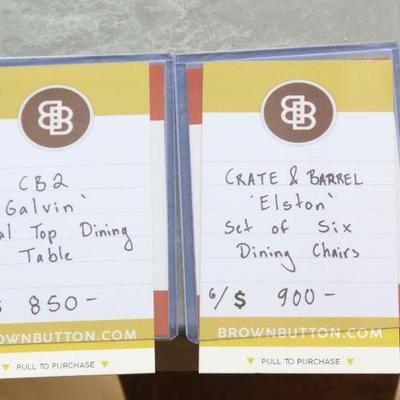 CB2
Galvin'
Top Dining
Table
850-
BROWNBUTTON.COM
▼ PULL TO PURCHASE ▼
CRATE & BARREL
'Elston'
Set of Six
Dining Chairs
6/$ 900-
BROWNBUTTON.COM
▼ PULL TO PURCHASE ▼